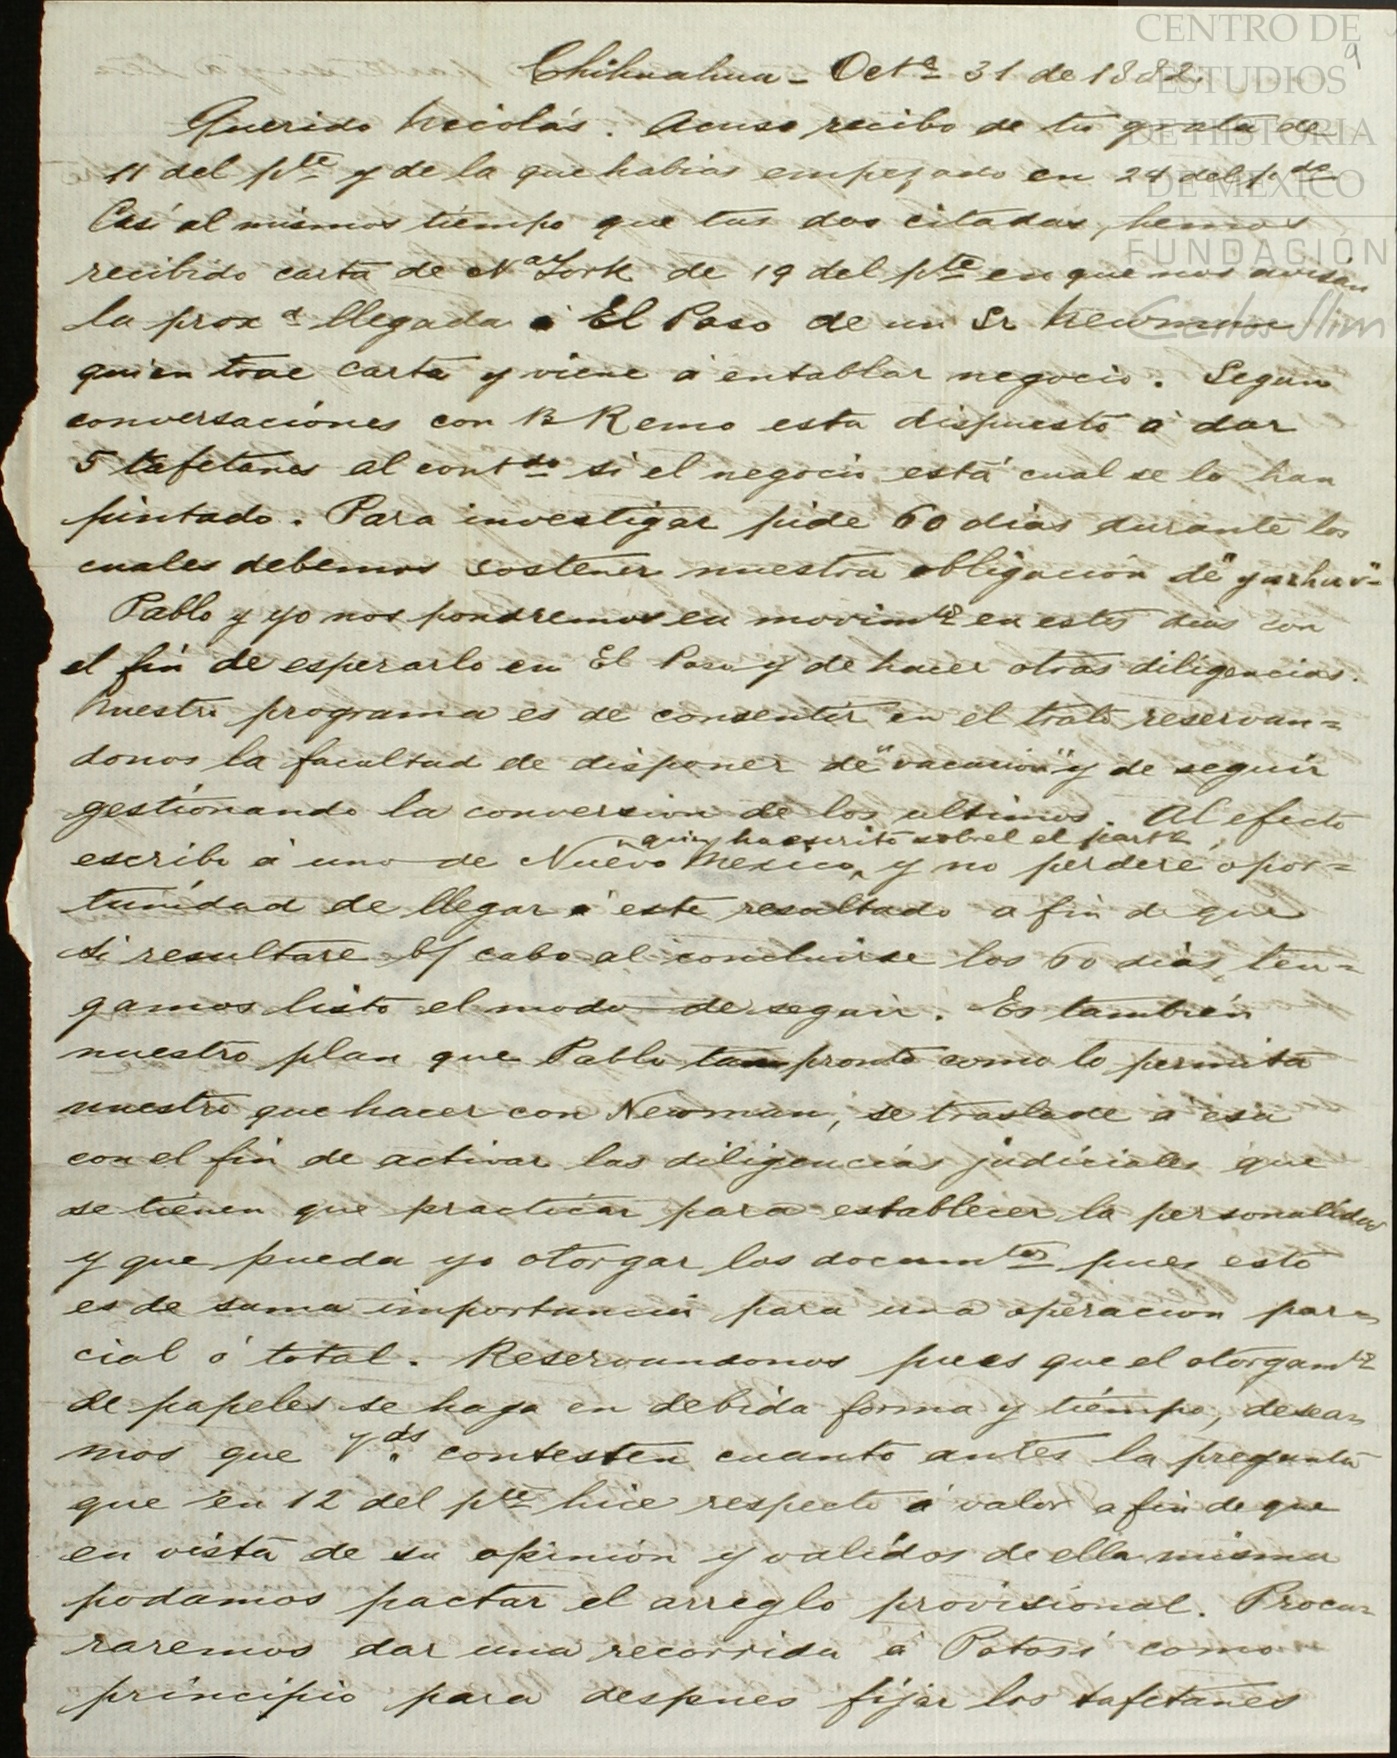 CENTRO DE
ESTUDIOS
DE HISTORIA
DE MÉXICO
FUNDACIÓN
Carlos Slim
9
Chihuahua - Oct.e 31 de 1882.
Querido Nicolás. Acuso recibo de tu grata de
11 del pte y de la que habias empezado en 24 del pdo
Casi al mismo tiempo que tus dos citadas, hemos
recibido carta de Na York de 19 del pte en que nos avisan
la proxa llegada á El Paso de un Sr Newman
quien trae carta y viene á entablar negocio. Segun
conversaciónes con B Remo esta dispuesto á dar
5 tafetanes al contdo si el negocio está cual se lo han
pintado. Para investigar pide 60 dias durante los
cuales debemos sostener nuestra obligación de
Pablo y yo nos pondremos en movimto en estos dias con
el fin de esperarlo en El Paso y de hacer otras diligencias.
Nuestro programa es de consentir en el trato reservan=
donos la facultad de disponer de "vacacion" y de seguir
gestionando la conversion de los ultimos. Al efecto
quien ha escrito sobre el partr
escribo á uno de Nuevo Mexico, y no perderé opor=
tunidad de llegar á este resultado a fin de que
si resultare b/ cabo al concluirse los 60 dias, ten=
gamos listo el modo de seguir. Es también
nuestro plan que Pablo tan pronto como lo permita
nuestro que hacer con Newman, se traslade á esa
con el fin de activar las diligencias judiciales que
se tienen que practicar para establecer la personalidad
y que pueda yo otorgar los documtos pues esto
es de suma importancia para una operacion par=
cial ó total. Reservandonos pues que el otorgamto
de papeles se haga en debida forma y tiempo, desea=
mos que Vds. contesten cuanto antes la pregunta
que en 12 del pte hice respecto á valor a fin de que
en vista de su opinión y validos de ella misma
podamos pactar el arreglo provisional. Procu=
raremos dar una recorrida á Potosí como
principio para despues fijar los tafetanes